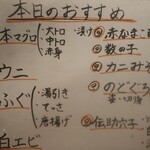 本日のおすすめ
本マグロ
大トロ
中トロ
赤身
漬け
ウニ
ふぐ
湯引き
てっさ
唐揚げ
白エビ
赤なまこ
数の子
カニみそ
のどぐろ
伝助穴子